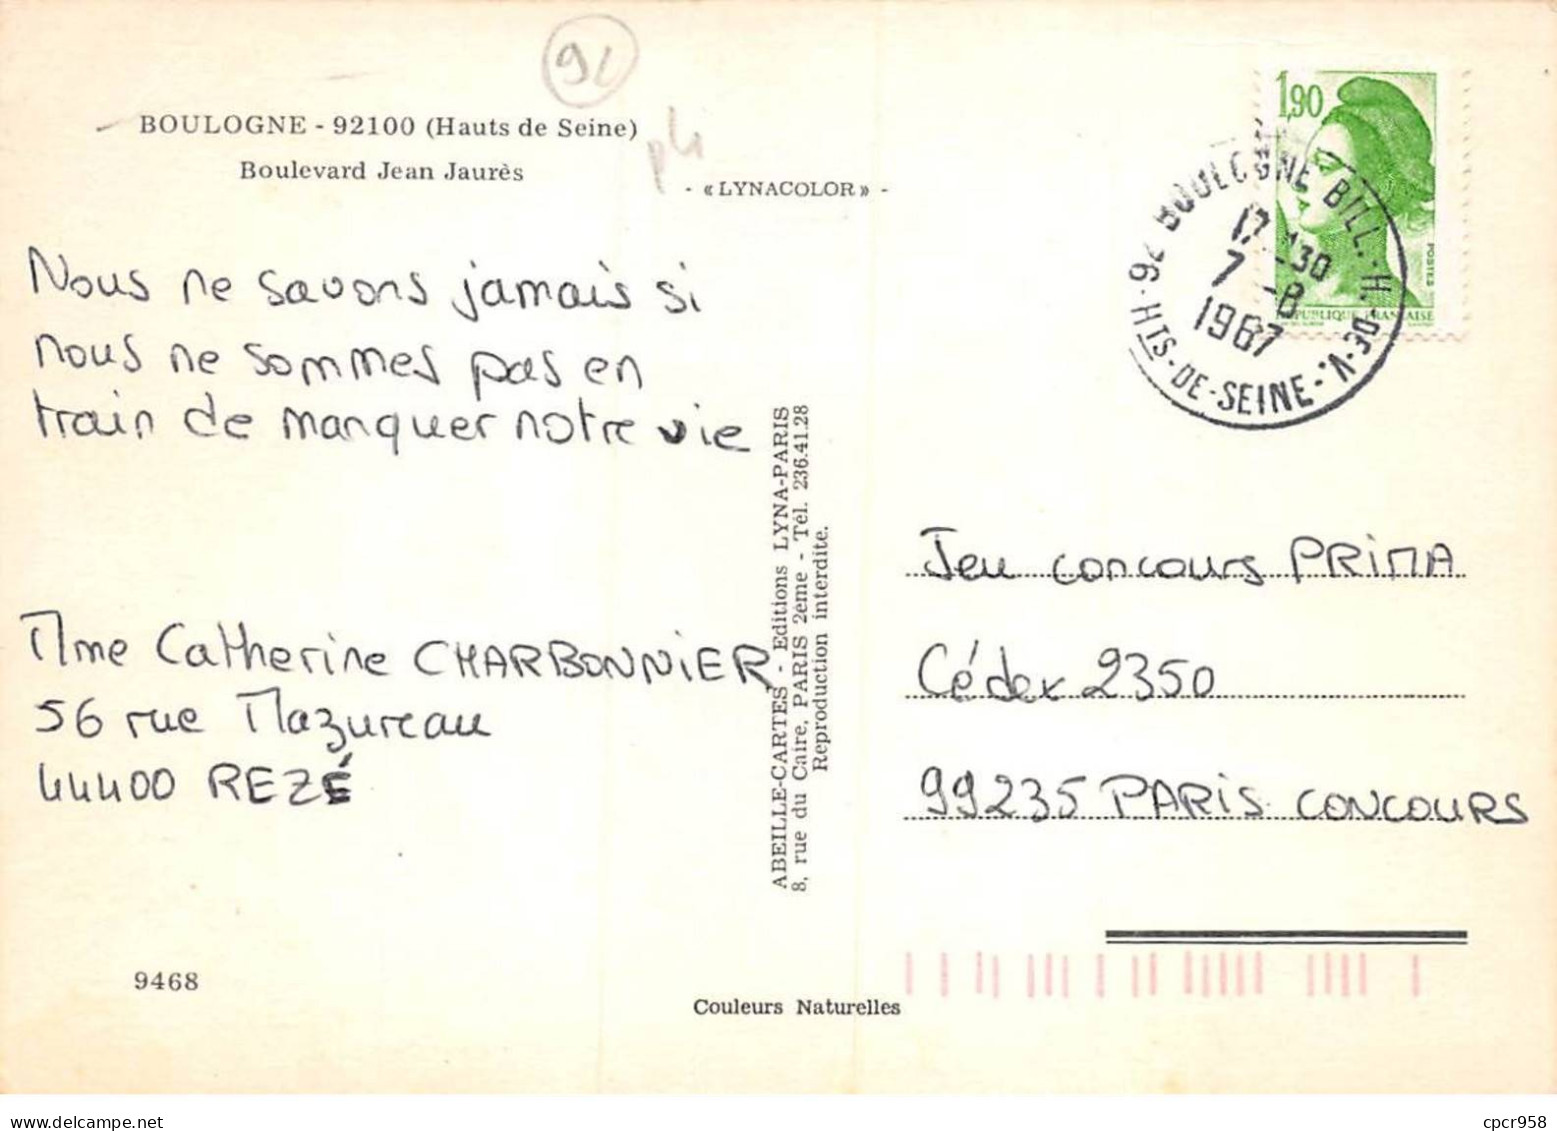 92
BOULOGNE - 92100 (Hauts de Seine)
Boulevard Jean Jaurès
- « LYNACOLOR » -
1,90
POSTES
REPUBLIQUE FRANÇAISE
92 BOULOGNE BILL.-H.-DE-V.
17-30
7-8
1987
HTS-DE-SEINE
Nous ne savons jamais si
nous ne sommes pas en
train de manquer notre vie
Mme Catherine CHARBONNIER
56 rue Mazureau
44400 REZÉ
ABEILLE-CARTES - Editions LYNA-PARIS
8, rue du Caire, PARIS 2ème - Tél. 236.41.28
Reproduction interdite.
Jeu concours PRIMA
Cédex 2350
99235 PARIS CONCOURS
9468
Couleurs Naturelles
cpcr958